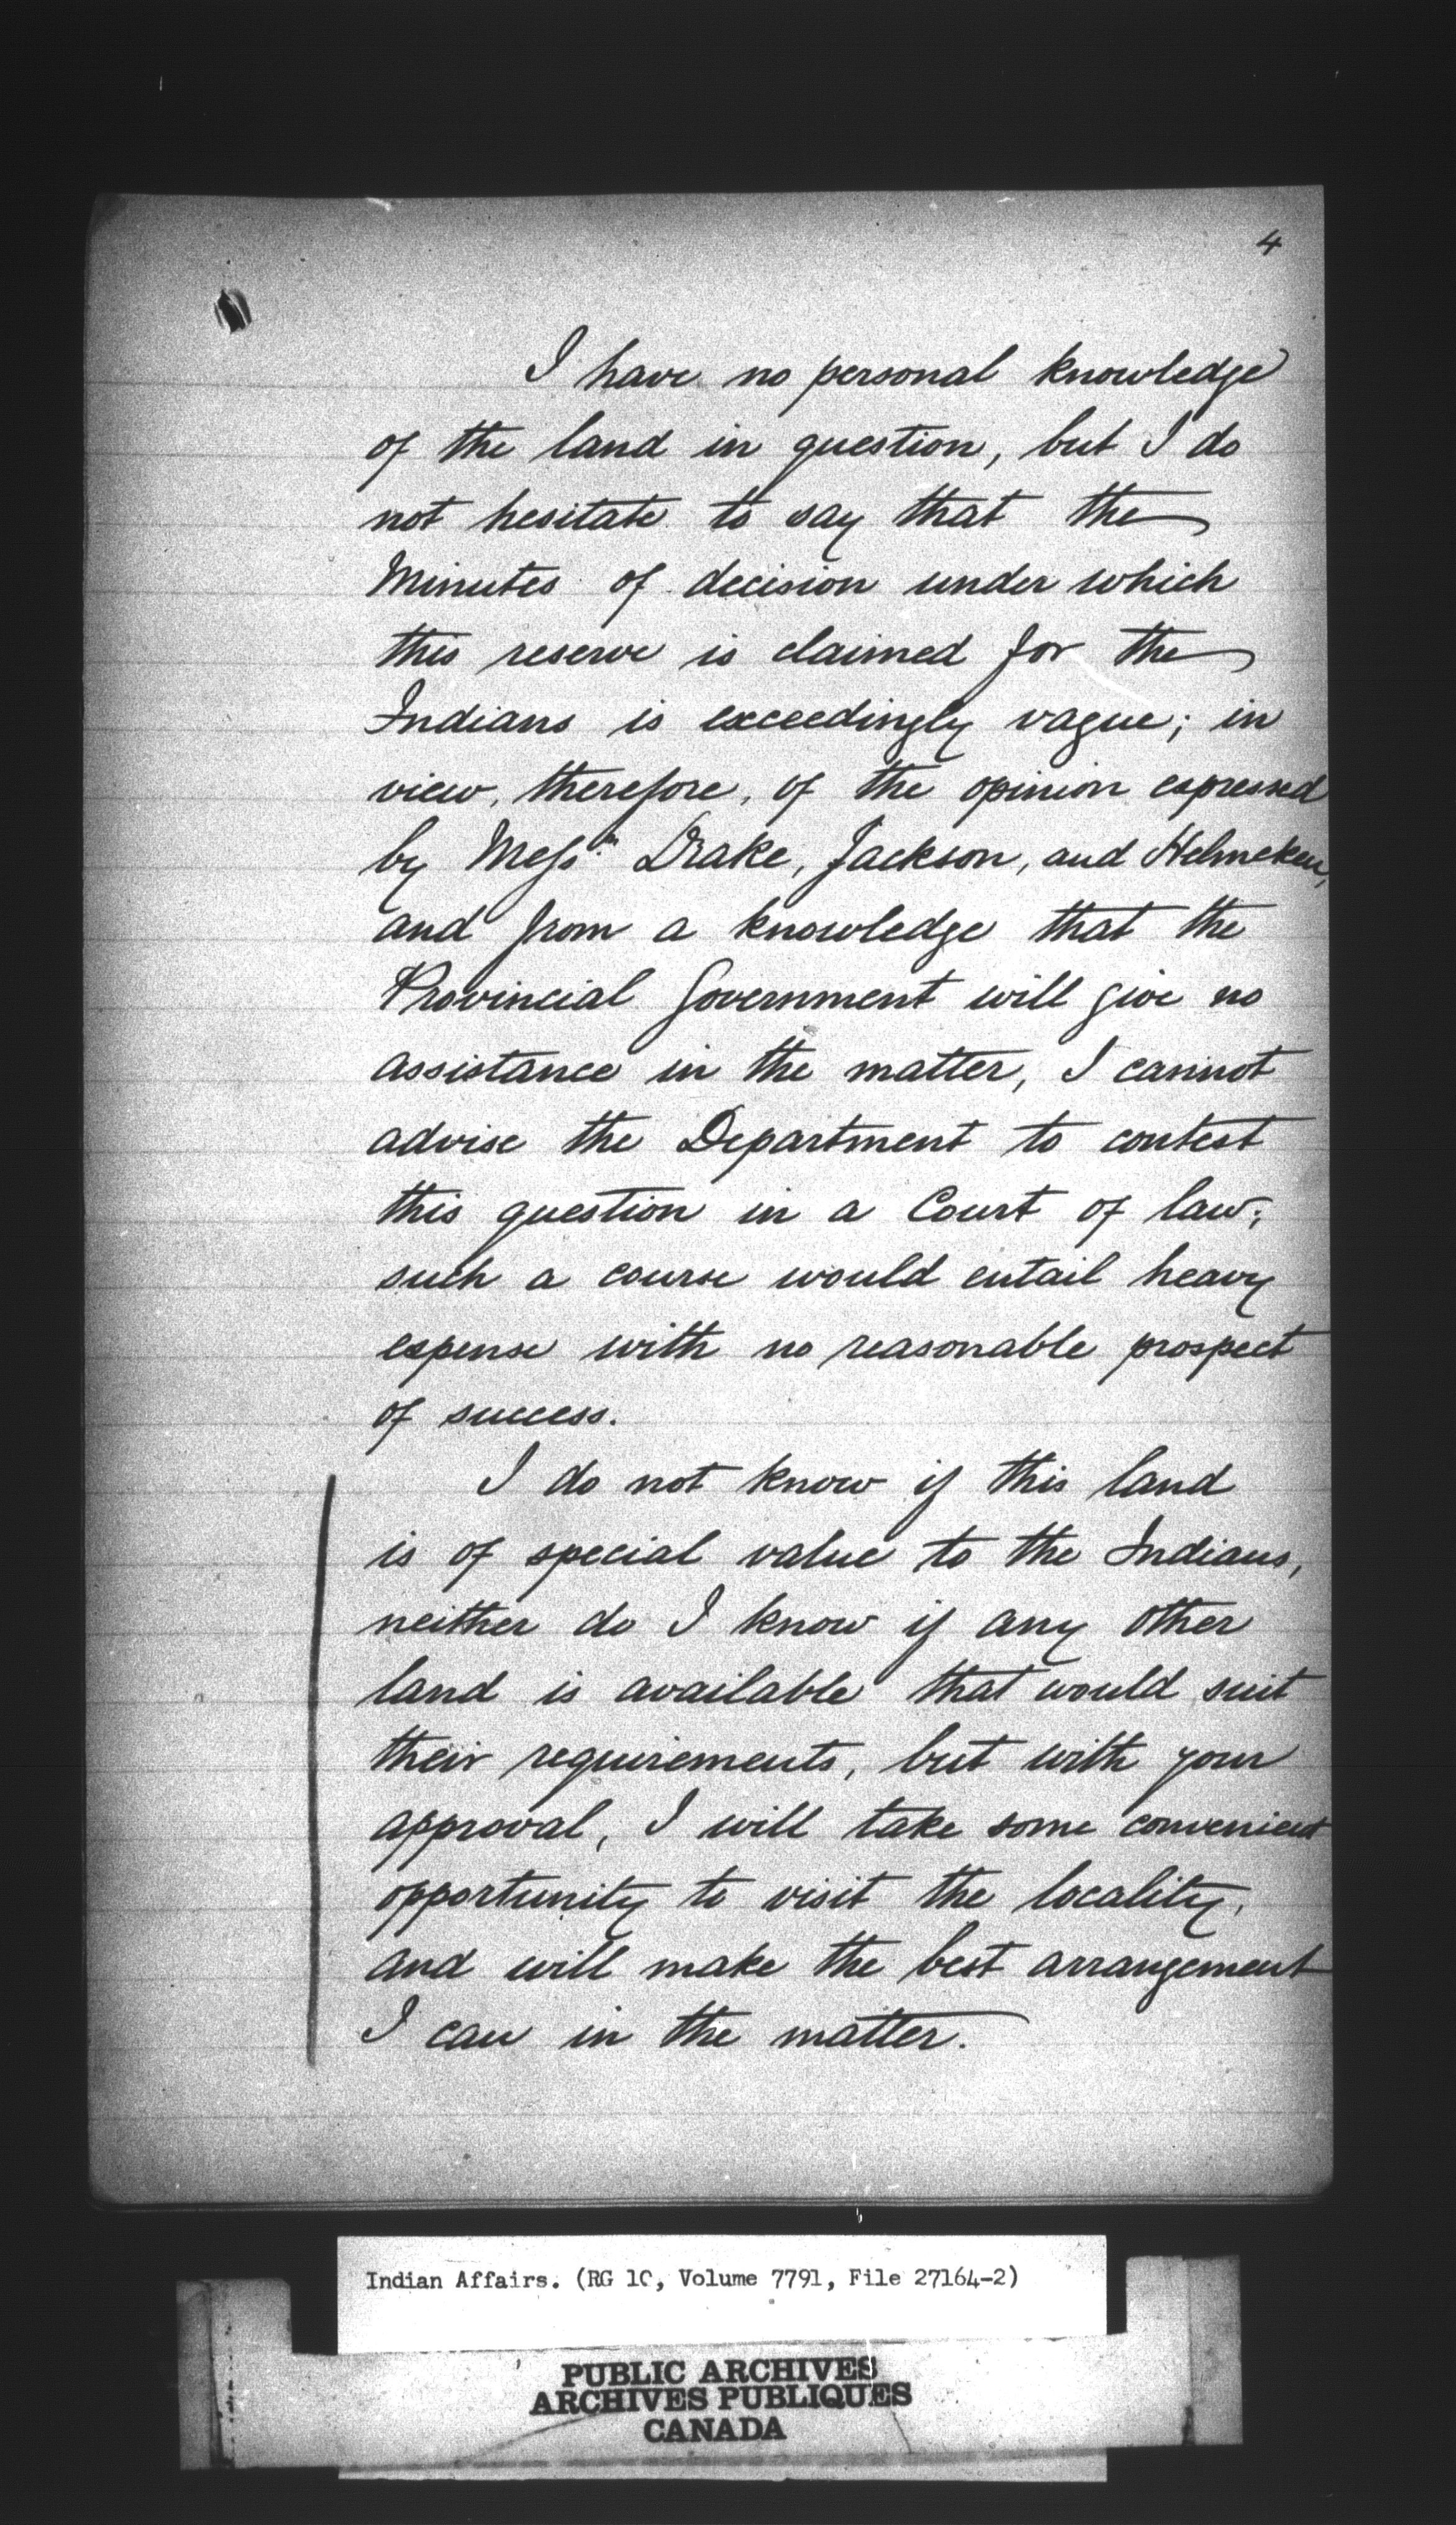 4
I have no personal knowledge
of the land in question, but I do
not hesitate to say that the
Minutes of decision under which
this reserve is claimed for the
Indians is exceedingly vague; in
view, therefore, of the opinion expressed
by Messrs. Drake, Jackson, and Helmcken,
and from a knowledge that the
Provincial Government will give no
assistance in the matter, I cannot
advise the Department to contest
this question in a Court of law;
such a course would entail heavy
expense with no reasonable prospect
of success.
I do not know if this land
is of special value to the Indians,
neither do I know if any other
land is available that would suit
their requirements, but with your
approval, I will take some convenient
opportunity to visit the locality,
and will make the best arrangement
I can in the matter.
Indian Affairs. (RG 10, Volume 7791, File 27164-2)
PUBLIC ARCHIVES
ARCHIVES PUBLIQUES
CANADA